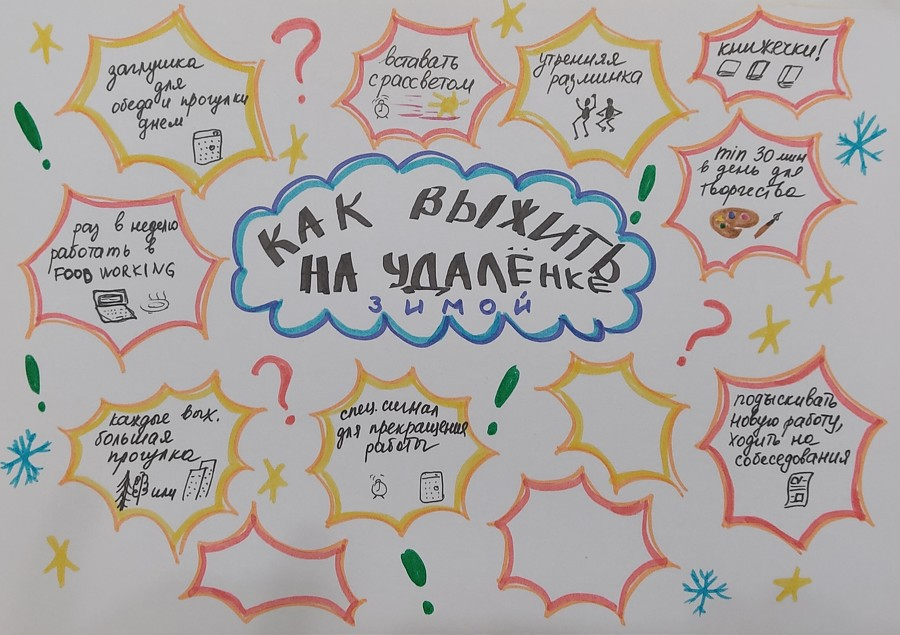 заглушка
для
обеда и прогулки
днем
вставать
с рассветом
утренняя
разминка
книжечки!
min 30 мин
в день для
творчества
раз в неделю
работать в
FOOD WORKING
КАК ВЫЖИТЬ
НА УДАЛЁНКЕ
ЗИМОЙ
каждые вых.
большая
прогулка
или
спец. сигнал
для прекращения
работы
подыскивать
новую работу,
ходить на
собеседования